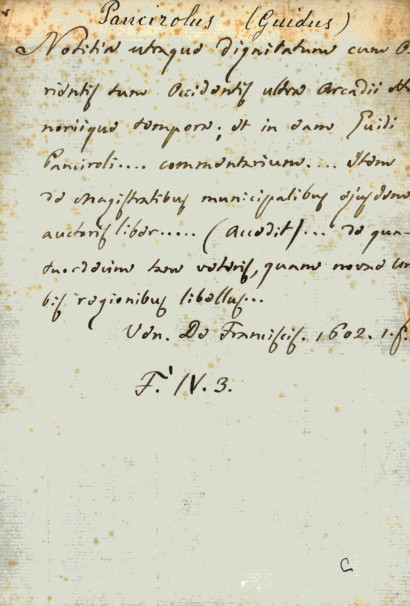 Pancirolus (Guidus)
Notitia utraque dignitatum cum O
rientis tum Occidentis ultra Arcadii
noriique tempora; et in eam Guidi
Panciroli.... commentarium.... Item
de Magistratibus municipalibus ejusdem
auctoris liber..... (Accedit)... de qua-
tuordecim tam veteris, quam novae Ur
bis regionibus libellus...
Ven. De Franciscis. 1602. 1. f.
F. IV. 3.